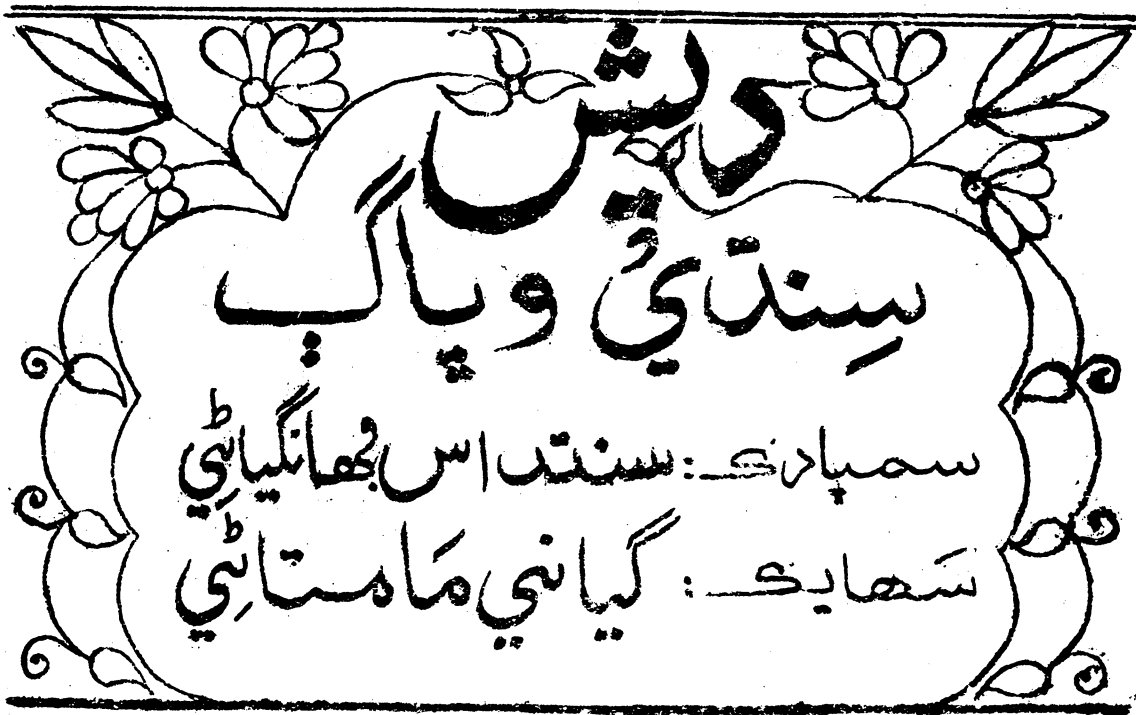 ديش
سِنڌيُ وڀاڳ
سمپادڪ: سنتداس جھانگياڻِي
سَھايڪ: گياني مَامتاڻِي